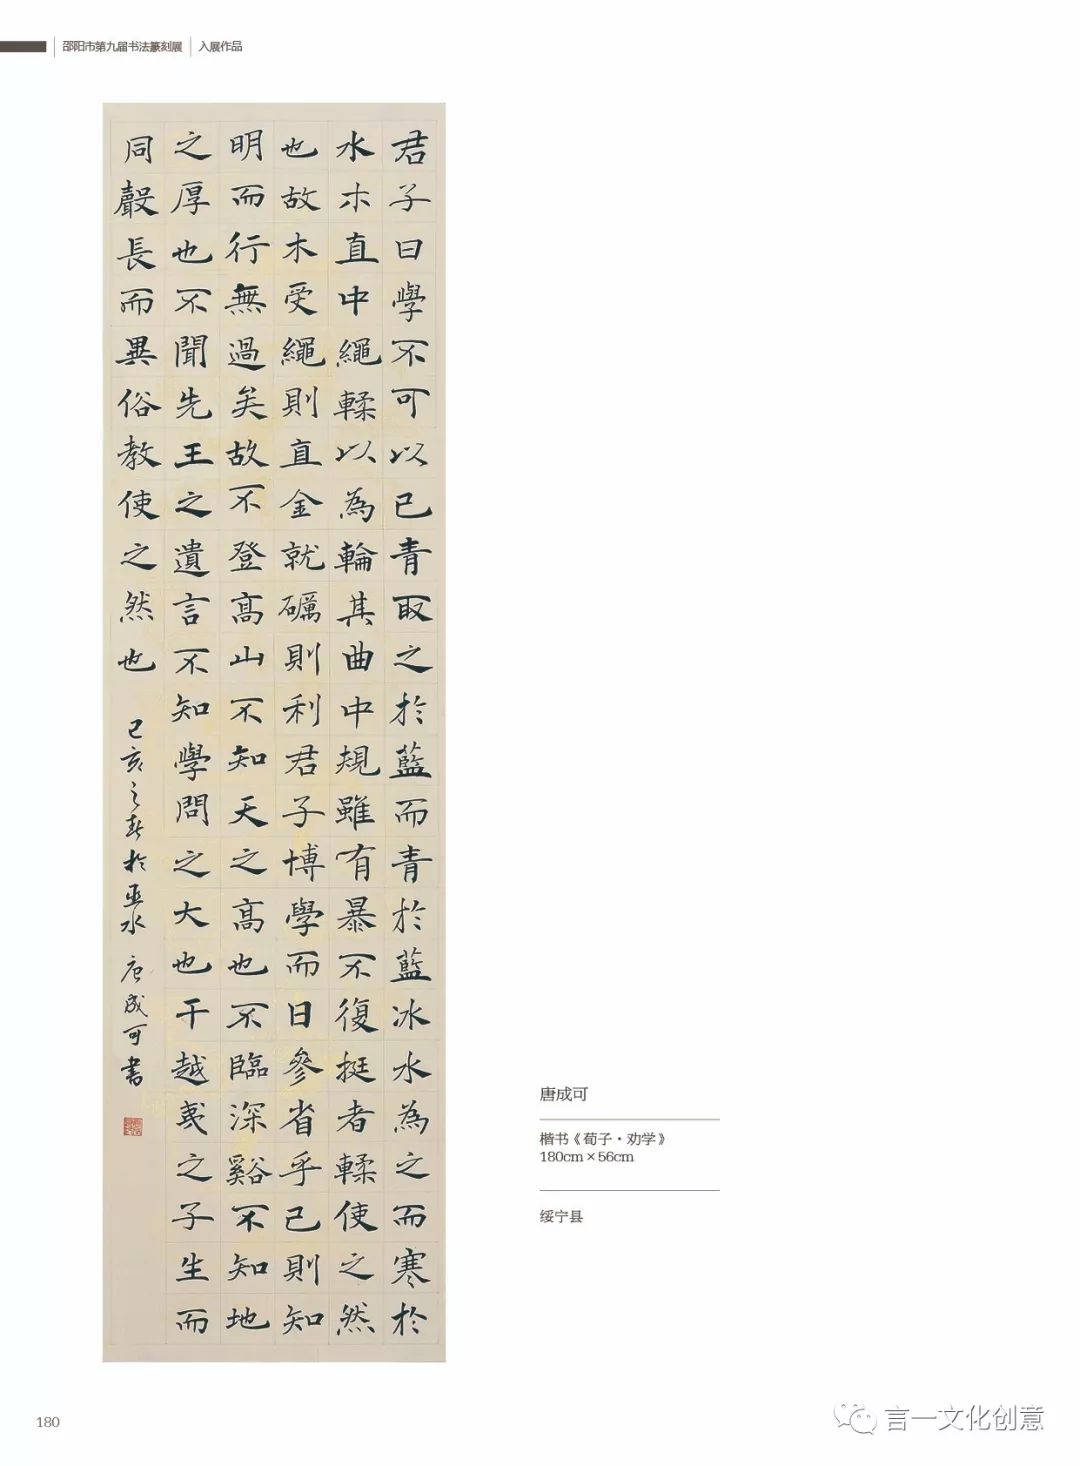 邵阳市第九届书法篆刻展 入展作品
君子曰學不可以已青取之於藍而青於藍冰水為之而寒於
水木直中繩輮以為輪其曲中規雖有暴不復挺者輮使之然
也故木受繩則直金就礪則利君子博學而日參省乎己則知
明而行無過矣故不登高山不知天之高也不臨深谿不知地
之厚也不聞先王之遺言不知學問之大也干越夷之子生而
同聲長而異俗教使之然也 己亥之春於巫水 唐成可書
唐成可
楷书《荀子·劝学》
180cm×56cm
绥宁县
180
言一文化创意